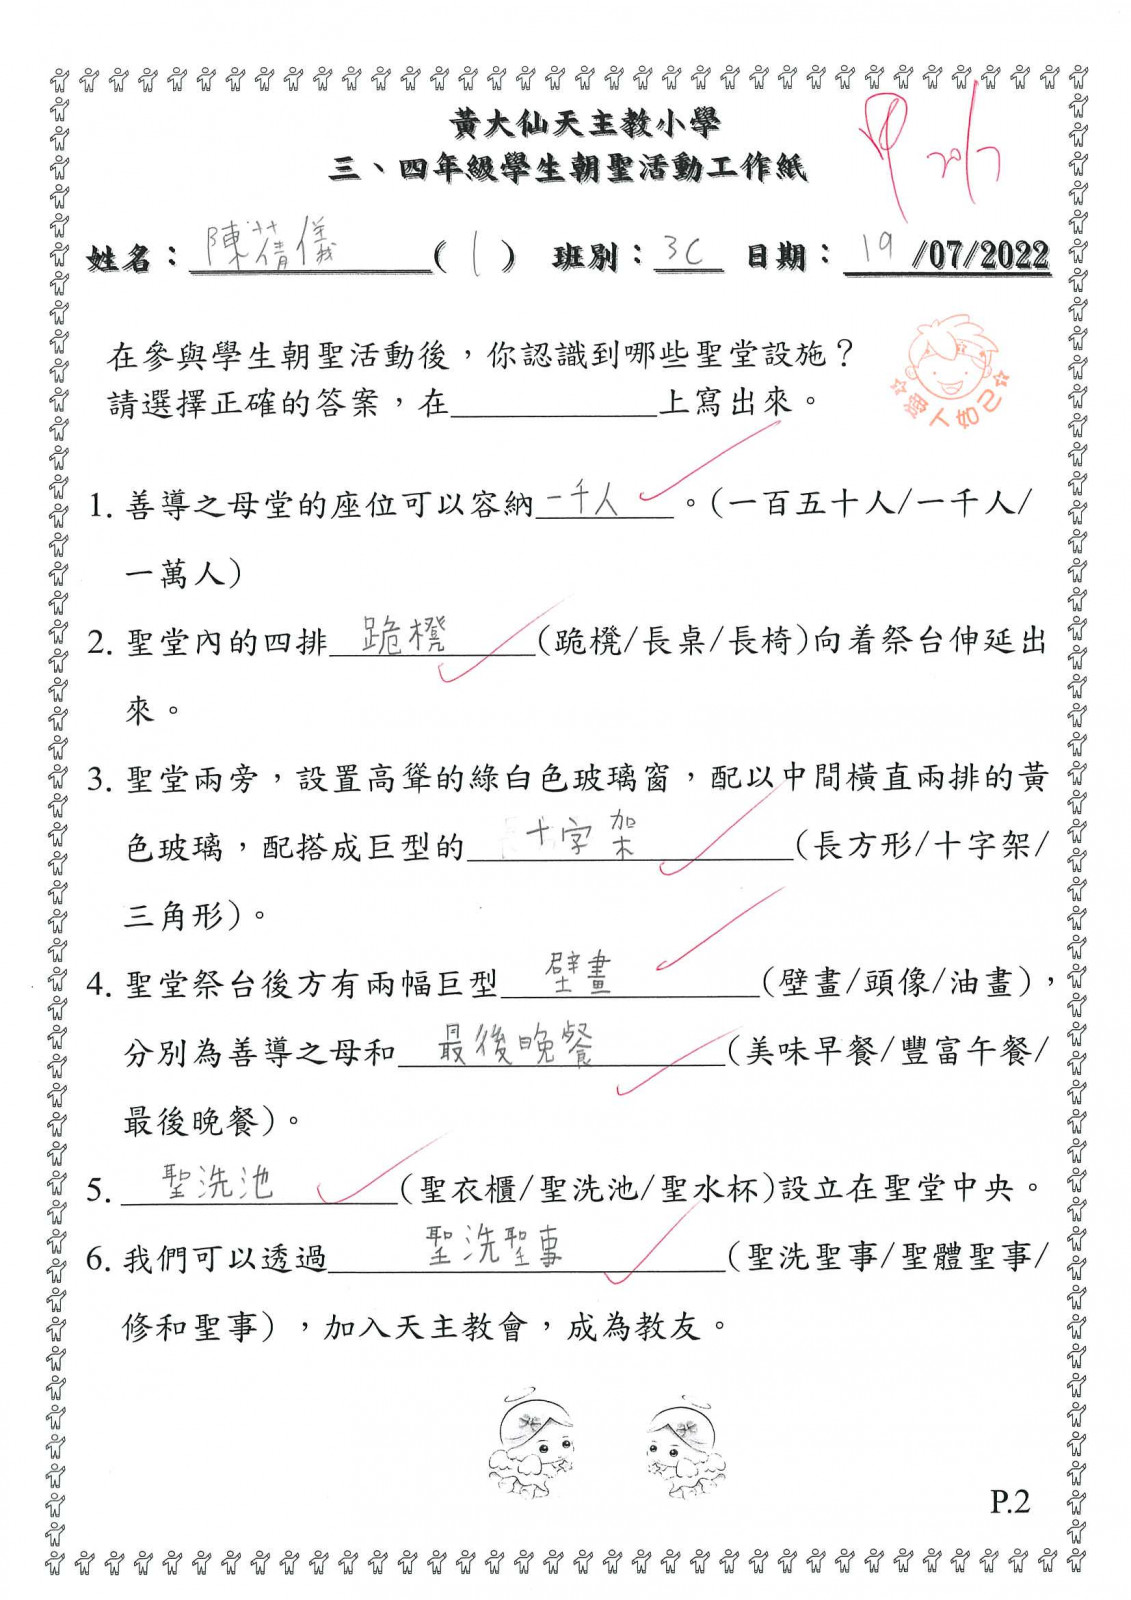 黃大仙天主教小學
三、四年級學生朝聖活動工作紙
姓名：陳蒨儀(1) 班別：3C 日期：19/07/2022
在參與學生朝聖活動後，你認識到哪些聖堂設施？
請選擇正確的答案，在____________上寫出來。
愛人如己
1. 善導之母堂的座位可以容納一千人。(一百五十人/一千人/
一萬人)
2. 聖堂內的四排跪櫈(跪櫈/長桌/長椅)向着祭台伸延出
來。
3. 聖堂兩旁，設置高聳的綠白色玻璃窗，配以中間橫直兩排的黃
色玻璃，配搭成巨型的十字架(長方形/十字架/
三角形)。
4. 聖堂祭台後方有兩幅巨型壁畫(壁畫/頭像/油畫)，
分別為善導之母和最後晚餐(美味早餐/豐富午餐/
最後晚餐)。
5. 聖洗池(聖衣櫃/聖洗池/聖水杯)設立在聖堂中央。
6. 我們可以透過聖洗聖事(聖洗聖事/聖體聖事/
修和聖事)，加入天主教會，成為教友。
P.2